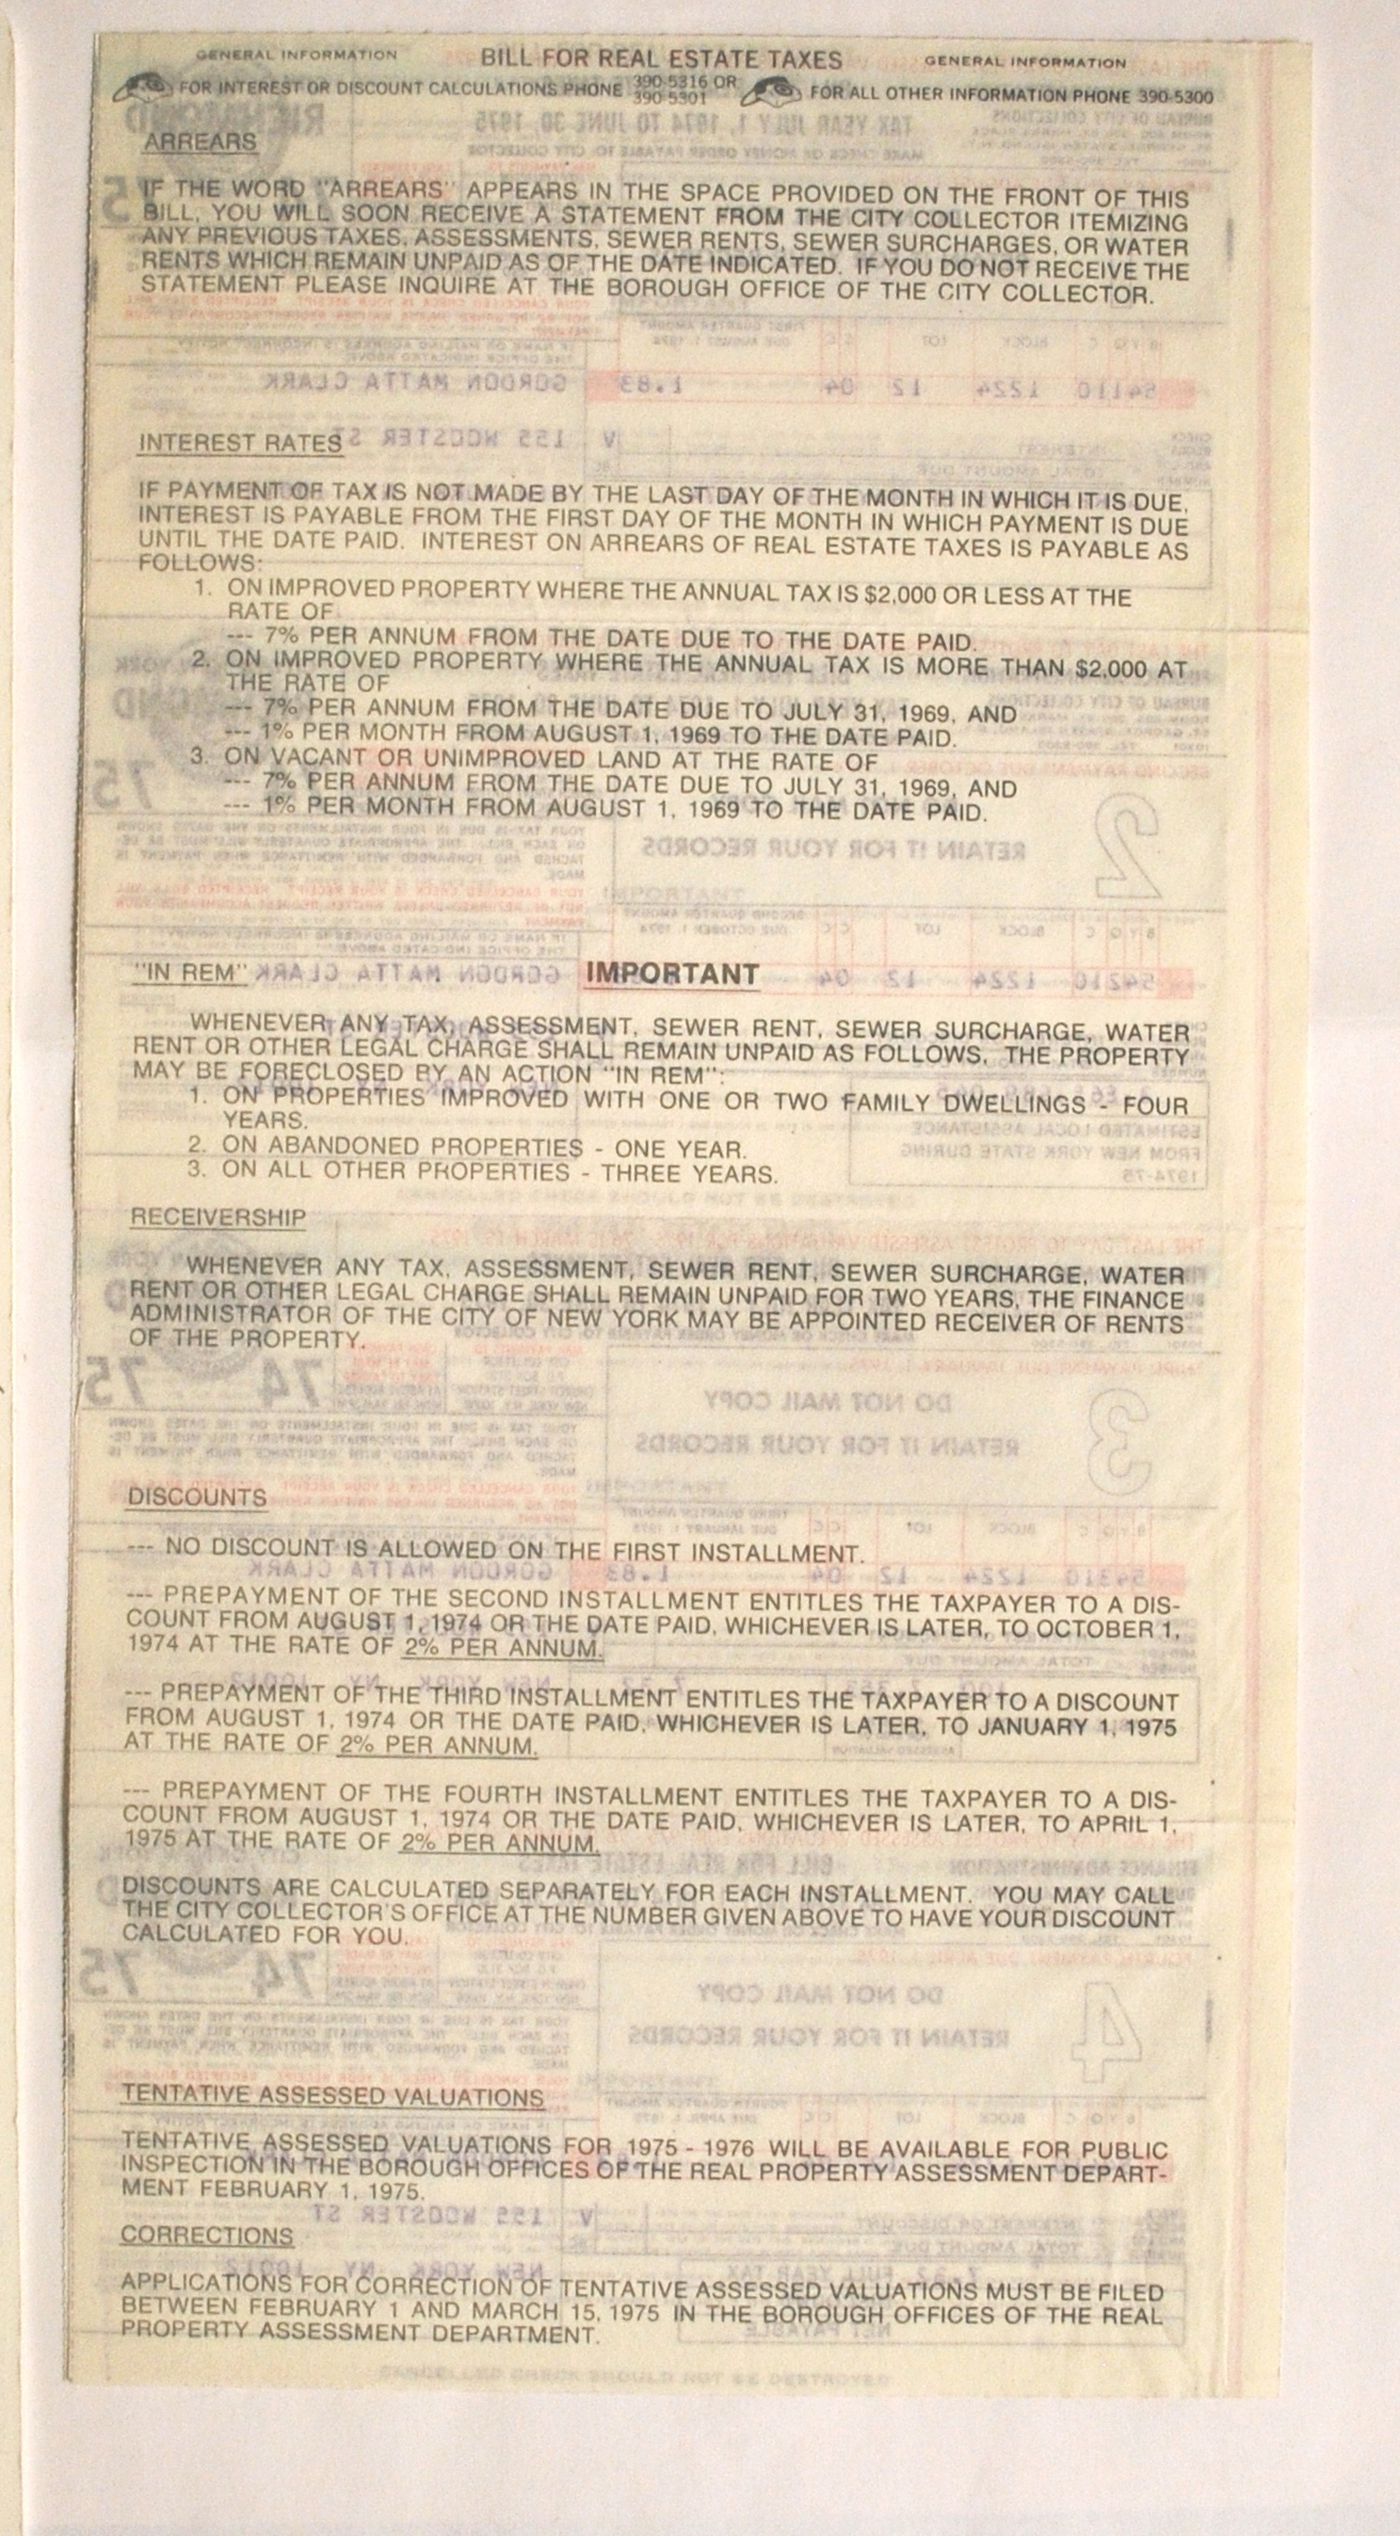 GENERAL INFORMATION BILL FOR REAL ESTATE TAXES GENERAL INFORMATION
FOR INTEREST OR DISCOUNT CALCULATIONS PHONE 390-5316 OR 390-5301 FOR ALL OTHER INFORMATION PHONE 390-5300
ARREARS
IF THE WORD "ARREARS" APPEARS IN THE SPACE PROVIDED ON THE FRONT OF THIS
BILL, YOU WILL SOON RECEIVE A STATEMENT FROM THE CITY COLLECTOR ITEMIZING
ANY PREVIOUS TAXES, ASSESSMENTS, SEWER RENTS, SEWER SURCHARGES, OR WATER
RENTS WHICH REMAIN UNPAID AS OF THE DATE INDICATED. IF YOU DO NOT RECEIVE THE
STATEMENT PLEASE INQUIRE AT THE BOROUGH OFFICE OF THE CITY COLLECTOR.
54110 1224 12 04 1.83 GORDON MATTA CLARK
V 155 WOOSTER ST
INTEREST RATES
IF PAYMENT OF TAX IS NOT MADE BY THE LAST DAY OF THE MONTH IN WHICH IT IS DUE,
INTEREST IS PAYABLE FROM THE FIRST DAY OF THE MONTH IN WHICH PAYMENT IS DUE
UNTIL THE DATE PAID. INTEREST ON ARREARS OF REAL ESTATE TAXES IS PAYABLE AS
FOLLOWS:
1. ON IMPROVED PROPERTY WHERE THE ANNUAL TAX IS $2,000 OR LESS AT THE
RATE OF
--- 7% PER ANNUM FROM THE DATE DUE TO THE DATE PAID.
2. ON IMPROVED PROPERTY WHERE THE ANNUAL TAX IS MORE THAN $2,000 AT
THE RATE OF
--- 7% PER ANNUM FROM THE DATE DUE TO JULY 31, 1969, AND
--- 1% PER MONTH FROM AUGUST 1, 1969 TO THE DATE PAID.
3. ON VACANT OR UNIMPROVED LAND AT THE RATE OF
--- 7% PER ANNUM FROM THE DATE DUE TO JULY 31, 1969, AND
--- 1% PER MONTH FROM AUGUST 1, 1969 TO THE DATE PAID.
RETAIN IT FOR YOUR RECORDS
2
"IN REM" IMPORTANT
54210 1224 12 04 GORDON MATTA CLARK
WHENEVER ANY TAX, ASSESSMENT, SEWER RENT, SEWER SURCHARGE, WATER
RENT OR OTHER LEGAL CHARGE SHALL REMAIN UNPAID AS FOLLOWS, THE PROPERTY
MAY BE FORECLOSED BY AN ACTION "IN REM":
1. ON PROPERTIES IMPROVED WITH ONE OR TWO FAMILY DWELLINGS - FOUR
YEARS.
2. ON ABANDONED PROPERTIES - ONE YEAR.
3. ON ALL OTHER PROPERTIES - THREE YEARS.
ESTIMATED LOCAL ASSISTANCE
FROM NEW YORK STATE DURING
1974-75
RECEIVERSHIP
WHENEVER ANY TAX, ASSESSMENT, SEWER RENT, SEWER SURCHARGE, WATER
RENT OR OTHER LEGAL CHARGE SHALL REMAIN UNPAID FOR TWO YEARS, THE FINANCE
ADMINISTRATOR OF THE CITY OF NEW YORK MAY BE APPOINTED RECEIVER OF RENTS
OF THE PROPERTY.
3
DO NOT MAIL COPY
RETAIN IT FOR YOUR RECORDS
74 75
DISCOUNTS
--- NO DISCOUNT IS ALLOWED ON THE FIRST INSTALLMENT.
54310 1224 12 04 1.83 GORDON MATTA CLARK
--- PREPAYMENT OF THE SECOND INSTALLMENT ENTITLES THE TAXPAYER TO A DIS-
COUNT FROM AUGUST 1, 1974 OR THE DATE PAID, WHICHEVER IS LATER, TO OCTOBER 1,
1974 AT THE RATE OF 2% PER ANNUM.
--- PREPAYMENT OF THE THIRD INSTALLMENT ENTITLES THE TAXPAYER TO A DISCOUNT
FROM AUGUST 1, 1974 OR THE DATE PAID, WHICHEVER IS LATER, TO JANUARY 1, 1975
AT THE RATE OF 2% PER ANNUM.
--- PREPAYMENT OF THE FOURTH INSTALLMENT ENTITLES THE TAXPAYER TO A DIS-
COUNT FROM AUGUST 1, 1974 OR THE DATE PAID, WHICHEVER IS LATER, TO APRIL 1,
1975 AT THE RATE OF 2% PER ANNUM.
DISCOUNTS ARE CALCULATED SEPARATELY FOR EACH INSTALLMENT. YOU MAY CALL
THE CITY COLLECTOR'S OFFICE AT THE NUMBER GIVEN ABOVE TO HAVE YOUR DISCOUNT
CALCULATED FOR YOU.
4
DO NOT MAIL COPY
RETAIN IT FOR YOUR RECORDS
74 75
TENTATIVE ASSESSED VALUATIONS
TENTATIVE ASSESSED VALUATIONS FOR 1975 - 1976 WILL BE AVAILABLE FOR PUBLIC
INSPECTION IN THE BOROUGH OFFICES OF THE REAL PROPERTY ASSESSMENT DEPART-
MENT FEBRUARY 1, 1975.
V 155 WOOSTER ST
CORRECTIONS
NEW YORK NY 10012
APPLICATIONS FOR CORRECTION OF TENTATIVE ASSESSED VALUATIONS MUST BE FILED
BETWEEN FEBRUARY 1 AND MARCH 15, 1975 IN THE BOROUGH OFFICES OF THE REAL
PROPERTY ASSESSMENT DEPARTMENT.
CANCELLED CHECK SHOULD NOT BE DESTROYED